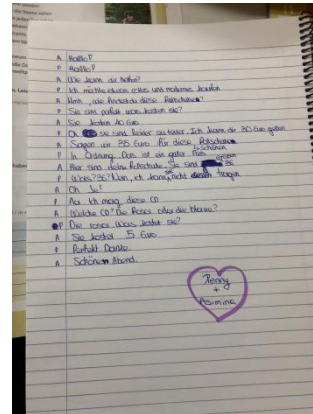 A Hallo!
P Hallo!
A Wie kann dir helfen?
P Ich möchte etwas altes und modernes kaufen
A Hmm, wie findest du diese Rollschuhe?
P Sie sind perfekt was kosten sie?
A Sie kosten 40 Euro
P Oh sie sind leider zu teuer. Ich kann dir 30 Euro geben
A Sagen wir 35 Euro für diese Rollschuhe
P In Ordnung. Das ist ein guter Preis
A Hier sind deine Rollschuhe. Sie sind 36
P Was? 36? Nein, ich kann nicht tragen
A Oh Je!
P Aa. Ich mag diese CD
A Welche CD? Die Rosa oder die blaue?
P Die rosa. Was kostet sie?
A Sie kostet 5 Euro
P Perfekt Danke.
A Schönen Abend.
Penny
+
Asimina